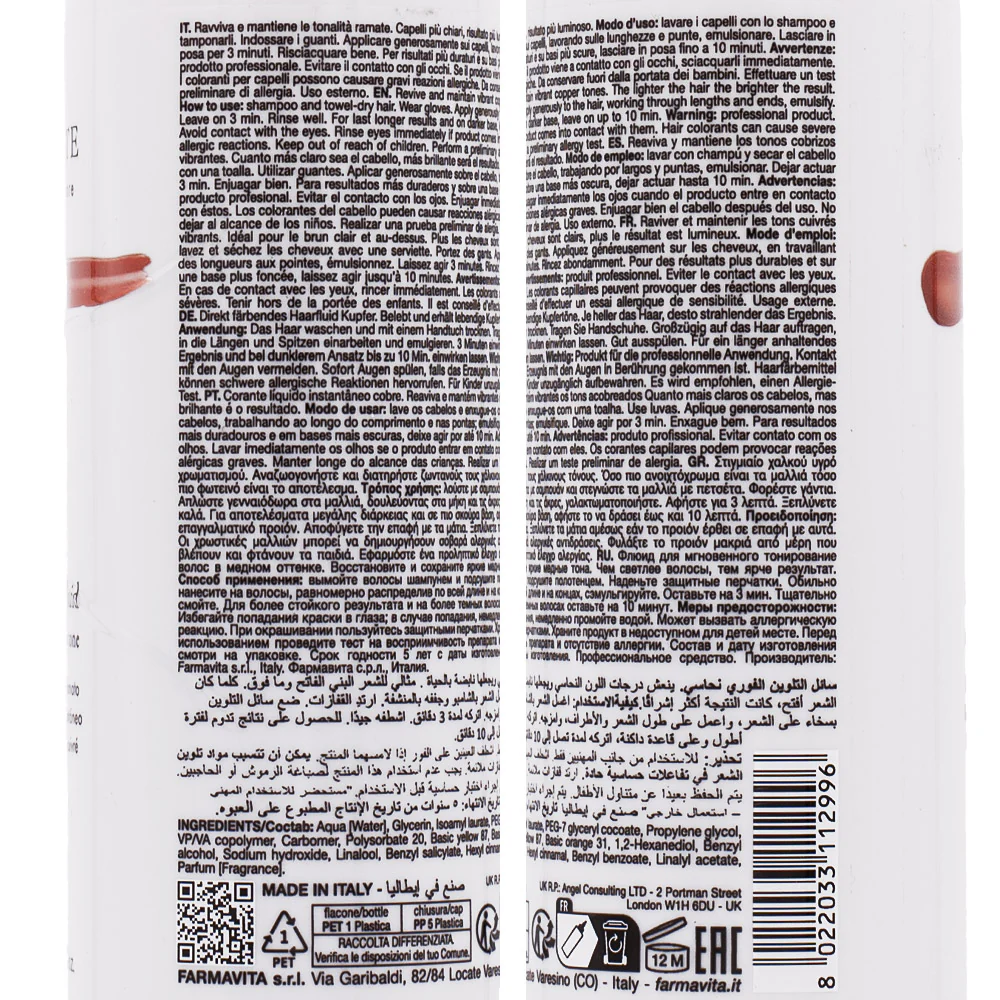 IT. Ravviva e mantiene le tonalità ramate. Capelli più chiari, risultato più luminoso. Modo d'uso: lavare i capelli con lo shampoo e
tamponarli. Indossare i guanti. Applicare generosamente sui capelli, lavorando sulle lunghezze e punte, emulsionare. Lasciare in
posa per 3 minuti. Risciacquare bene. Per risultati più duraturi e su basi più scure, lasciare in posa fino a 10 minuti. Avvertenze:
prodotto professionale. Evitare il contatto con gli occhi. Se il prodotto viene a contatto con gli occhi, sciacquarli immediatamente.
I coloranti per capelli possono causare gravi reazioni allergiche. Da conservare fuori dalla portata dei bambini. Effettuare un test
preliminare di allergia. Uso esterno. EN. Revive and maintain vibrant copper tones. The lighter the hair the brighter the result.
How to use: shampoo and towel-dry hair. Wear gloves. Apply generously to the hair, working through lengths and ends, emulsify.
Leave on 3 min. Rinse well. For last longer results and on darker base, leave on up to 10 min. Warning: professional product.
Avoid contact with the eyes. Rinse eyes immediately if product comes into contact with them. Hair colorants can cause severe
allergic reactions. Keep out of reach of children. Perform a preliminary allergy test. ES. Reaviva y mantiene los tonos cobrizos
vibrantes. Cuanto más claro sea el cabello, más brillante será el resultado. Modo de empleo: lavar con champú y secar el cabello
con una toalla. Utilizar guantes. Aplicar generosamente sobre el cabello, trabajando por largos y puntas, emulsionar. Dejar actuar
3 min. Enjuagar bien. Para resultados más duraderos y sobre una base más oscura, dejar actuar hasta 10 min. Advertencias:
producto profesional. Evitar el contacto con los ojos. Enjuagar inmediatamente los ojos cuando el producto entre en contacto
con éstos. Los colorantes del cabello pueden causar reacciones alérgicas graves. Enjuagar bien el cabello después del uso. No
dejar al alcance de los niños. Realizar una prueba preliminar de alergia. Uso externo. FR. Raviver et maintenir les tons cuivrés
vibrants. Idéal pour le brun clair et au-dessus. Plus les cheveux sont clairs, plus le résultat est lumineux. Mode d'emploi:
lavez et séchez les cheveux avec une serviette. Portez des gants. Appliquez généreusement sur les cheveux, en travaillant
des longueurs aux pointes, émulsionnez. Laissez agir 3 minutes. Rincez abondamment. Pour des résultats plus durables et sur
une base plus foncée, laissez agir jusqu'à 10 minutes. Avertissements: produit professionnel. Eviter le contact avec les yeux.
En cas de contact avec les yeux, rincer immédiatement. Les colorants capillaires peuvent provoquer des réactions allergiques
sévères. Tenir hors de la portée des enfants. Il est conseillé d'effectuer un essai allergique de sensibilité. Usage externe.
DE. Direkt färbendes Haarfluid Kupfer. Belebt und erhält lebendige Kupfertöne. Je heller das Haar, desto strahlender das Ergebnis.
Anwendung: Das Haar waschen und mit einem Handtuch trocknen. Tragen Sie Handschuhe. Großzügig auf das Haar auftragen,
in die Längen und Spitzen einarbeiten und emulgieren. 3 Minuten einwirken lassen. Gut ausspülen. Für ein länger anhaltendes
Ergebnis und bei dunklerem Ansatz bis zu 10 Min. einwirken lassen. Wichtig: Produkt für die professionnelle Anwendung. Kontakt
mit den Augen vermeiden. Sofort Augen spülen, falls das Erzeugnis mit den Augen in Berührung gekommen ist. Haarfärbemittel
können schwere allergische Reaktionen hervorrufen. Für Kinder unzugänglich aufbewahren. Es wird empfohlen, einen Allergie-
Test. PT. Corante líquido instantâneo cobre. Reaviva e mantém vibrantes os tons acobreados Quanto mais claros os cabelos, mas
brilhante é o resultado. Modo de usar: lave os cabelos e enxugue-os com uma toalha. Use luvas. Aplique generosamente nos
cabelos, trabalhando ao longo do comprimento e nas pontas; emulsifique. Deixe agir por 3 min. Enxague bem. Para resultados
mais duradouros e em bases mais escuras, deixe agir por até 10 min. Advertências: produto profissional. Evitar contato com os
olhos. Lavar imediatamente os olhos se o produto entrar em contato com eles. Os corantes capilares podem provocar reações
alérgicas graves. Manter longe do alcance das crianças. Realizar um teste preliminar de alergia. GR. Στιγμιαίο χαλκού υγρό
χρωματισμού. Αναζωογονήστε και διατηρήστε ζωντανούς τους χάλκινους τόνους. Όσο πιο ανοιχτόχρωμα είναι τα μαλλιά τόσο
πιο φωτεινό είναι το αποτέλεσμα. Τρόπος χρήσης: λούστε με σαμπουάν και στεγνώστε τα μαλλιά με πετσέτα. Φορέστε γάντια.
Απλώστε γενναιόδωρα στα μαλλιά, δουλεύοντας στα μήκη και τις άκρες, γαλακτωματοποιήστε. Αφήστε για 3 λεπτά. Ξεπλύνετε
καλά. Για αποτελέσματα μεγάλης διάρκειας και σε πιο σκούρα βάση, αφήστε το να δράσει έως και 10 λεπτά. Προειδοποίηση:
επαγγελματικό προϊόν. Αποφύγετε την επαφή με τα μάτια. Ξεπλύνετε τα μάτια αμέσως εάν το προϊόν έρθει σε επαφή με αυτά.
Οι χρωστικές μαλλιών μπορεί να δημιουργήσουν σοβαρά αλλεργικές αντιδράσεις. Φυλάξτε το προϊόν μακριά από μέρη που
βλέπουν και φτάνουν τα παιδιά. Εφαρμόστε ένα προληπτικό έλεγχο αλεργίας. RU. Флюид для мгновенного тонирования
волос в медном оттенке. Восстановите и сохраните яркие медные тона. Чем светлее волосы, тем ярче результат.
Способ применения: вымойте волосы шампунем и подсушите полотенцем. Наденьте защитные перчатки. Обильно
нанесите на волосы, равномерно распределив по всей длине и на концах, сэмульгируйте. Оставьте на 3 мин. Тщательно
смойте. Для более стойкого результата и на более темных волосах оставьте на 10 минут. Меры предосторожности:
Избегайте попадания краски в глаза; в случае попадания, немедленно промойте водой. Может вызвать аллергическую
реакцию. При окрашивании пользуйтесь защитными перчатками. Храните продукт в недоступном для детей месте. Перед
использованием проведите тест на восприимчивость препарата и отсутствие аллергии. Состав и дату изготовления
смотри на упаковке. Срок годности 5 лет с даты изготовления. Профессиональное средство. Производитель:
Farmavita s.r.l., Italy. Фармавита с.р.л., Италия.
سائل التلوين الفوري نحاسي. ينعش درجات اللون النحاسي ويجعلها نابضة بالحياة. مثالي للشعر البني الفاتح وما فوق. كلما كان
الشعر أفتح، كانت النتيجة أكثر إشراقًا. كيفيةالاستخدام: اغسل الشعر بالشامبو وجففه بالمنشفة. ارتدِ القفازات. ضع سائل التلوين
بسخاء على الشعر، واعمل على طول الشعر والأطراف، وامزجه. اتركه لمدة 3 دقائق. اشطفه جيدًا. للحصول على نتائج تدوم لفترة
أطول و وعلى قاعدة داكنة، اتركه لمدة تصل إلى 10 دقائق.
تحذير: للاستخدام من جانب المهنيين فقط. اشطف العينين على الفور إذا لامسهما المنتج. يمكن أن تتسبب مواد تلوين
الشعر في تفاعلات حساسية حادة. ارتد قفازات ملائمة. يجب عدم استخدام هذا المنتج لصباغة الرموش أو الحاجبين.
يتم الحفظ بعيدًا عن متناول الأطفال. إجراء اختبار حساسية قبل الاستخدام. "مستحضر للاستخدام المهني
– استعمال خارجي" صنع في إيطاليا تاريخ الانتهاء: ٥ سنوات من تاريخ الإنتاج المطبوع على العبوه.
INGREDIENTS/Состав: Aqua [Water], Glycerin, Isoamyl laurate, PEG-7 glyceryl cocoate, Propylene glycol,
VP/VA copolymer, Carbomer, Polysorbate 20, Basic yellow 87, Basic orange 31, 1,2-Hexanediol, Benzyl
alcohol, Sodium hydroxide, Linalool, Benzyl salicylate, Hexyl cinnamal, Benzyl benzoate, Linalyl acetate,
Parfum [Fragrance].
MADE IN ITALY - صنع في إيطاليا
UK R.P.: Angel Consulting LTD - 2 Portman Street
London W1H 6DU - UK
1
PET
flacone/bottle
PET 1 Plastica
chiusura/cap
PP 5 Plastica
RACCOLTA DIFFERENZIATA.
Verifica le disposizioni del tuo Comune.
FR
12 M
EAC
FARMAVITA s.r.l. Via Garibaldi, 82/84 Locate Varesino (CO) - Italy - farmavita.it
8 022033 112996